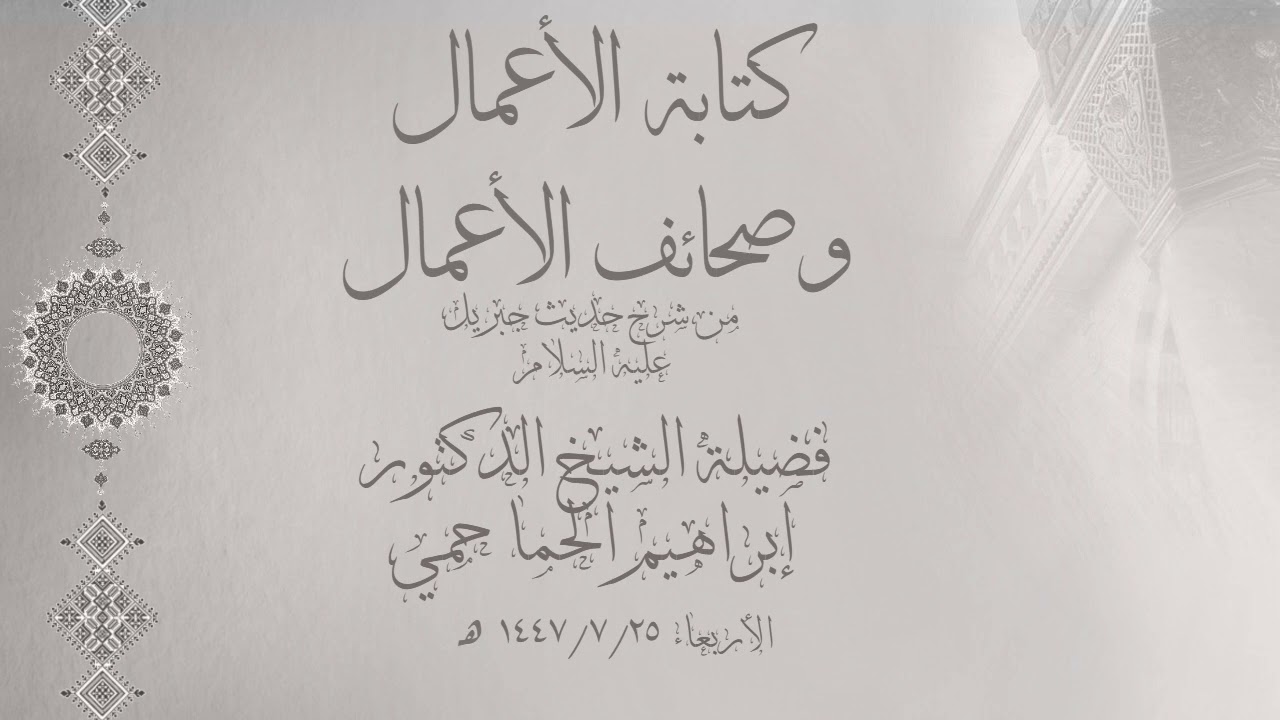 كتابة الأعمال
وصحائف الأعمال
من شرح حديث جبريل
عليه السلام
فضيلة الشيخ الدكتور
إبراهيم الحماحمي
الأربعاء ١٤٤٧/٧/٢٥ هـ